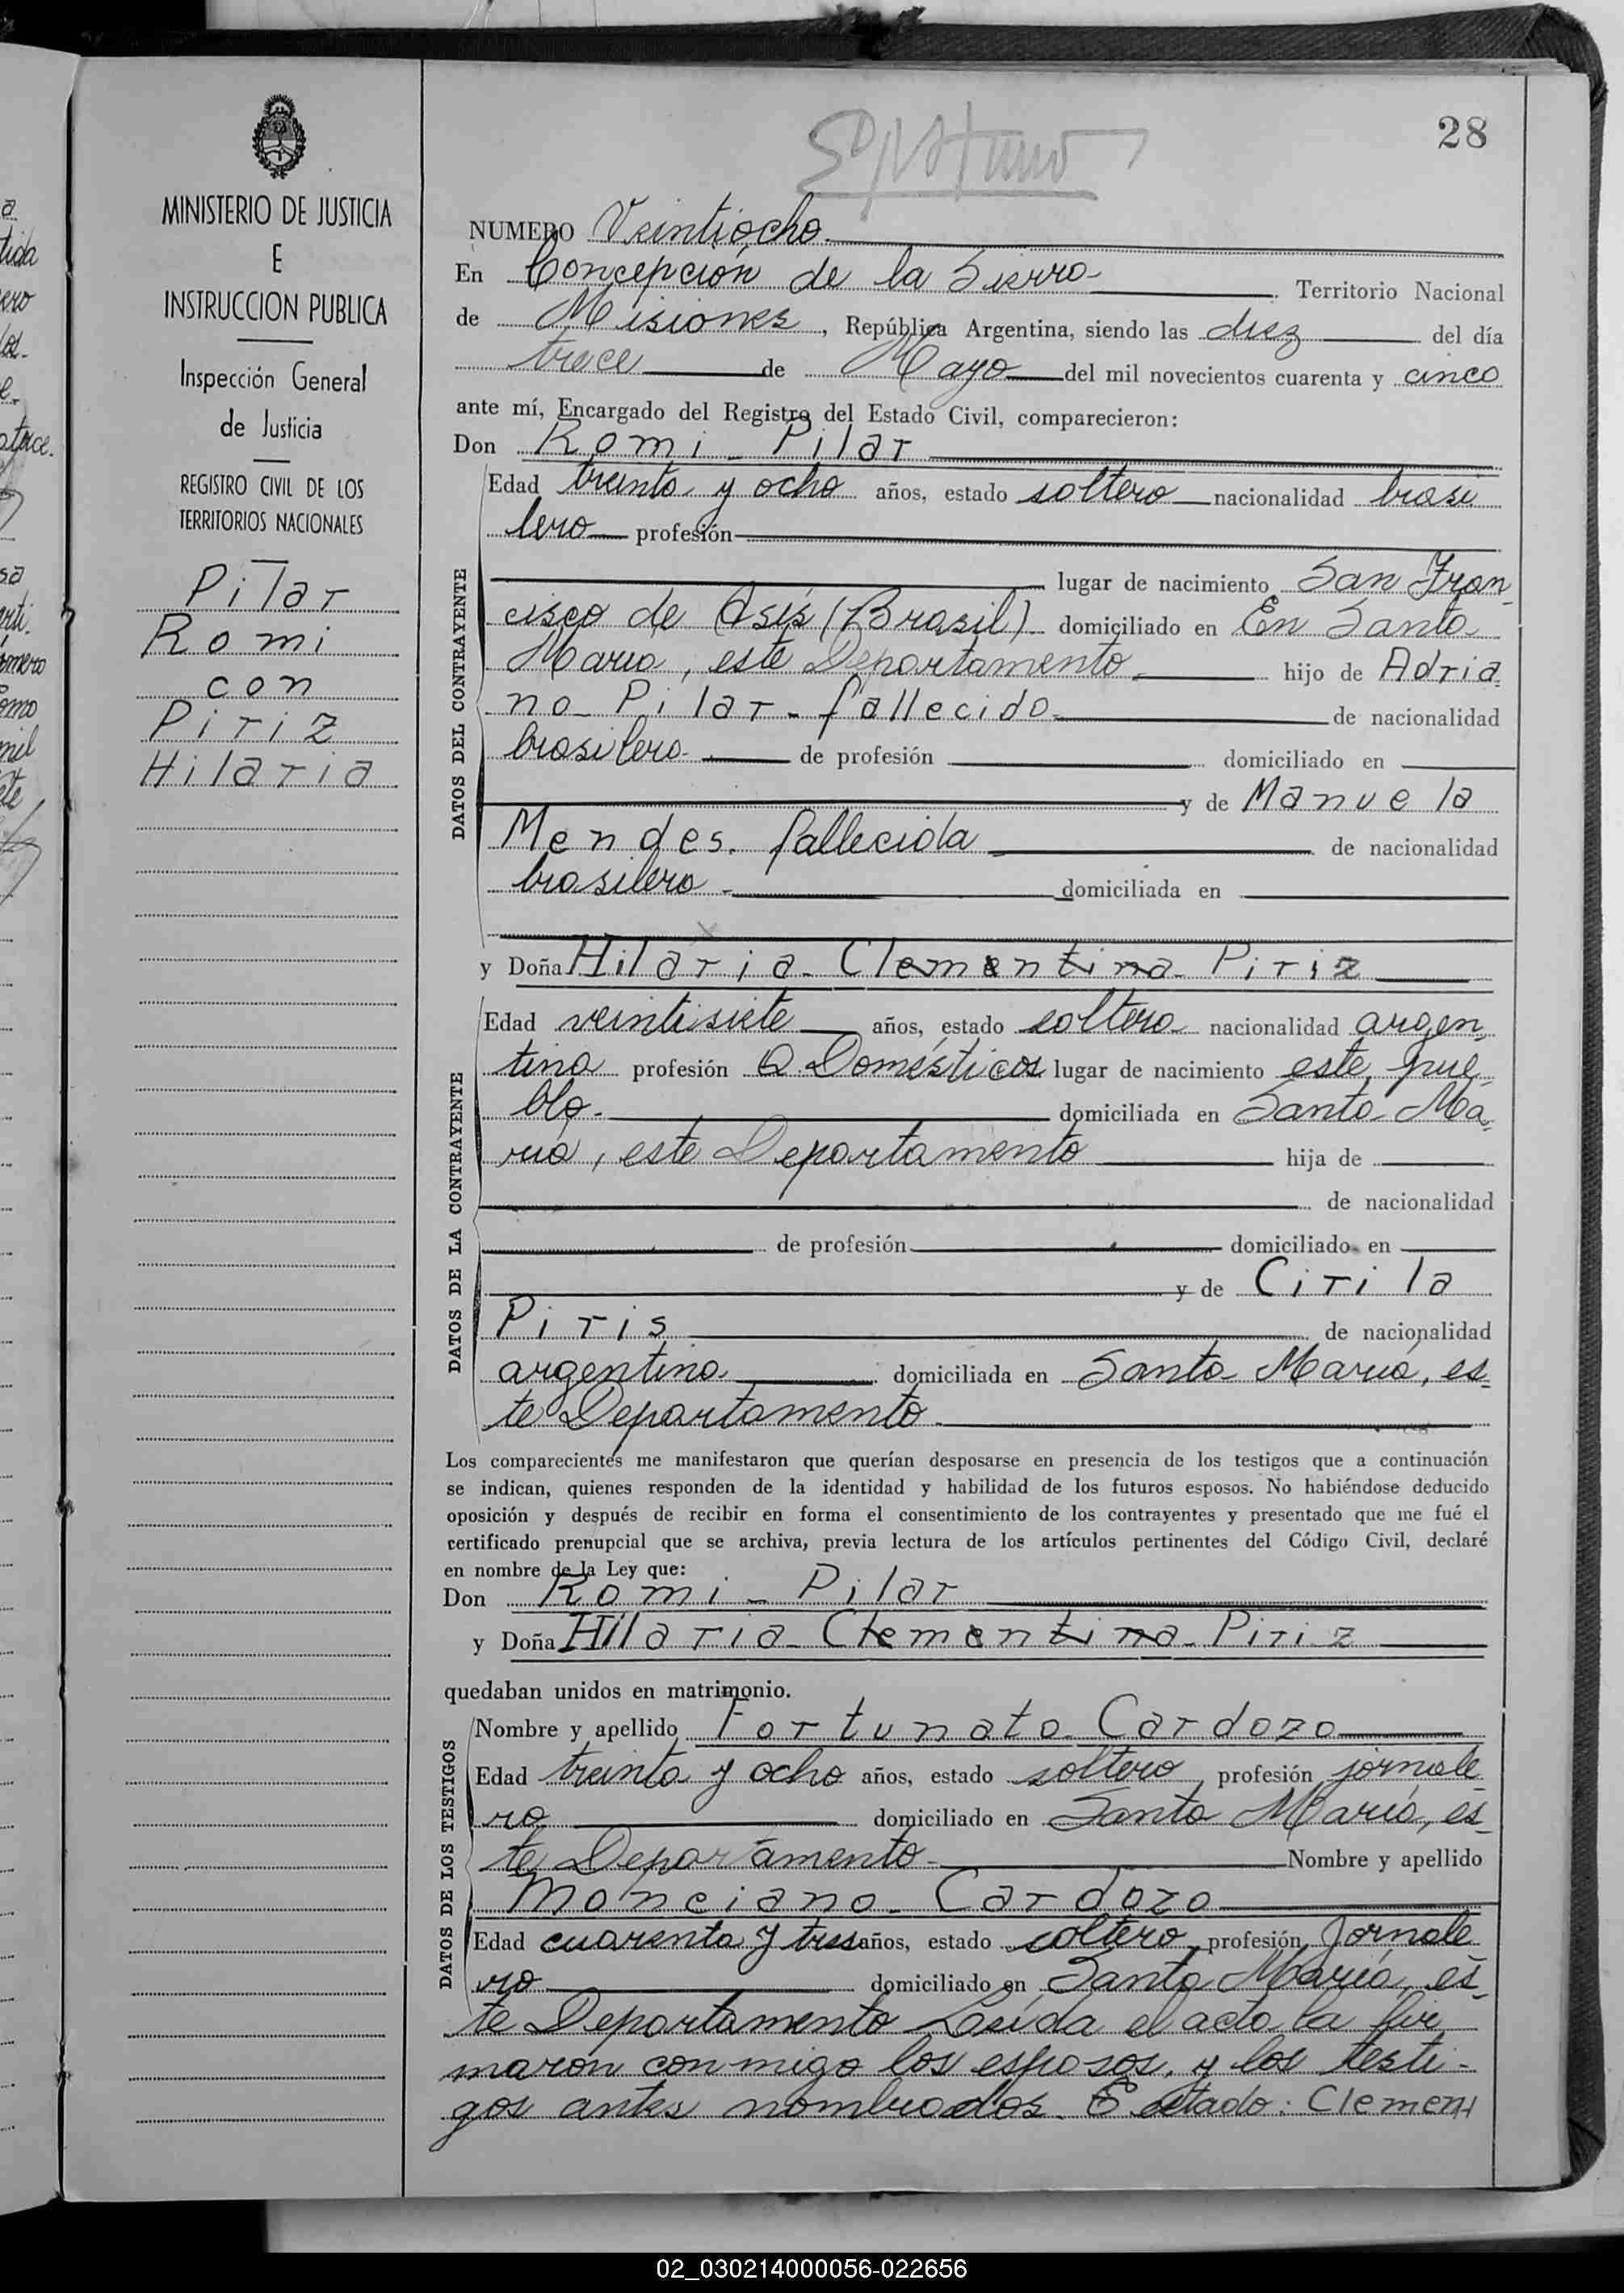 28
NUMERO Veintiocho.
En Concepción de la Sierra Territorio Nacional
de Misiones, República Argentina, siendo las diez del día
trece de Mayo del mil novecientos cuarenta y cinco
ante mí, Encargado del Registro del Estado Civil, comparecieron:
Don Romi Pilar
DATOS DEL CONTRAYENTE
Edad treinta y ocho años, estado soltero nacionalidad brasi
lero profesión
lugar de nacimiento San Fran
cisco de Asís (Brasil) domiciliado en En Santa
Maria, este Departamento hijo de Adria
no Pilar - fallecido de nacionalidad
brasilero de profesión domiciliado en
y de Manuela
Mendes. fallecida de nacionalidad
brasilera domiciliada en
y Doña Hilaria Clementina Piriz
DATOS DE LA CONTRAYENTE
Edad veintisiete años, estado soltera nacionalidad argen
tina profesión Q. Domésticos lugar de nacimiento este pue
blo. domiciliada en Santa Ma
ria, este Departamento hija de
de nacionalidad
de profesión domiciliado en
y de Cirila
Piris de nacionalidad
argentina domiciliada en Santa María, es
te Departamento
Los comparecientes me manifestaron que querían desposarse en presencia de los testigos que a continuación
se indican, quienes responden de la identidad y habilidad de los futuros esposos. No habiéndose deducido
oposición y después de recibir en forma el consentimiento de los contrayentes y presentado que me fué el
certificado prenupcial que se archiva, previa lectura de los artículos pertinentes del Código Civil, declaré
en nombre de la Ley que:
Don Romi Pilar
y Doña Hilaria Clementina Piriz
quedaban unidos en matrimonio.
DATOS DE LOS TESTIGOS
Nombre y apellido Fortunato Cardozo
Edad treinta y ocho años, estado soltero profesión jornale
ro domiciliado en Santa María, es
te Departamento Nombre y apellido
Monciano Cardozo
Edad cuarenta y tres años, estado soltero, profesión Jornale
ro domiciliado en Santa María, es
te Departamento Leída el acta la fir
maron conmigo los esposos, y los testi-
gos antes nombrados. E ctado: Clemen
MINISTERIO DE JUSTICIA
E
INSTRUCCION PUBLICA
Inspección General
de Justicia
REGISTRO CIVIL DE LOS
TERRITORIOS NACIONALES
Pilar
Romi
con
Piriz
Hilaria
02_030214000056-022656